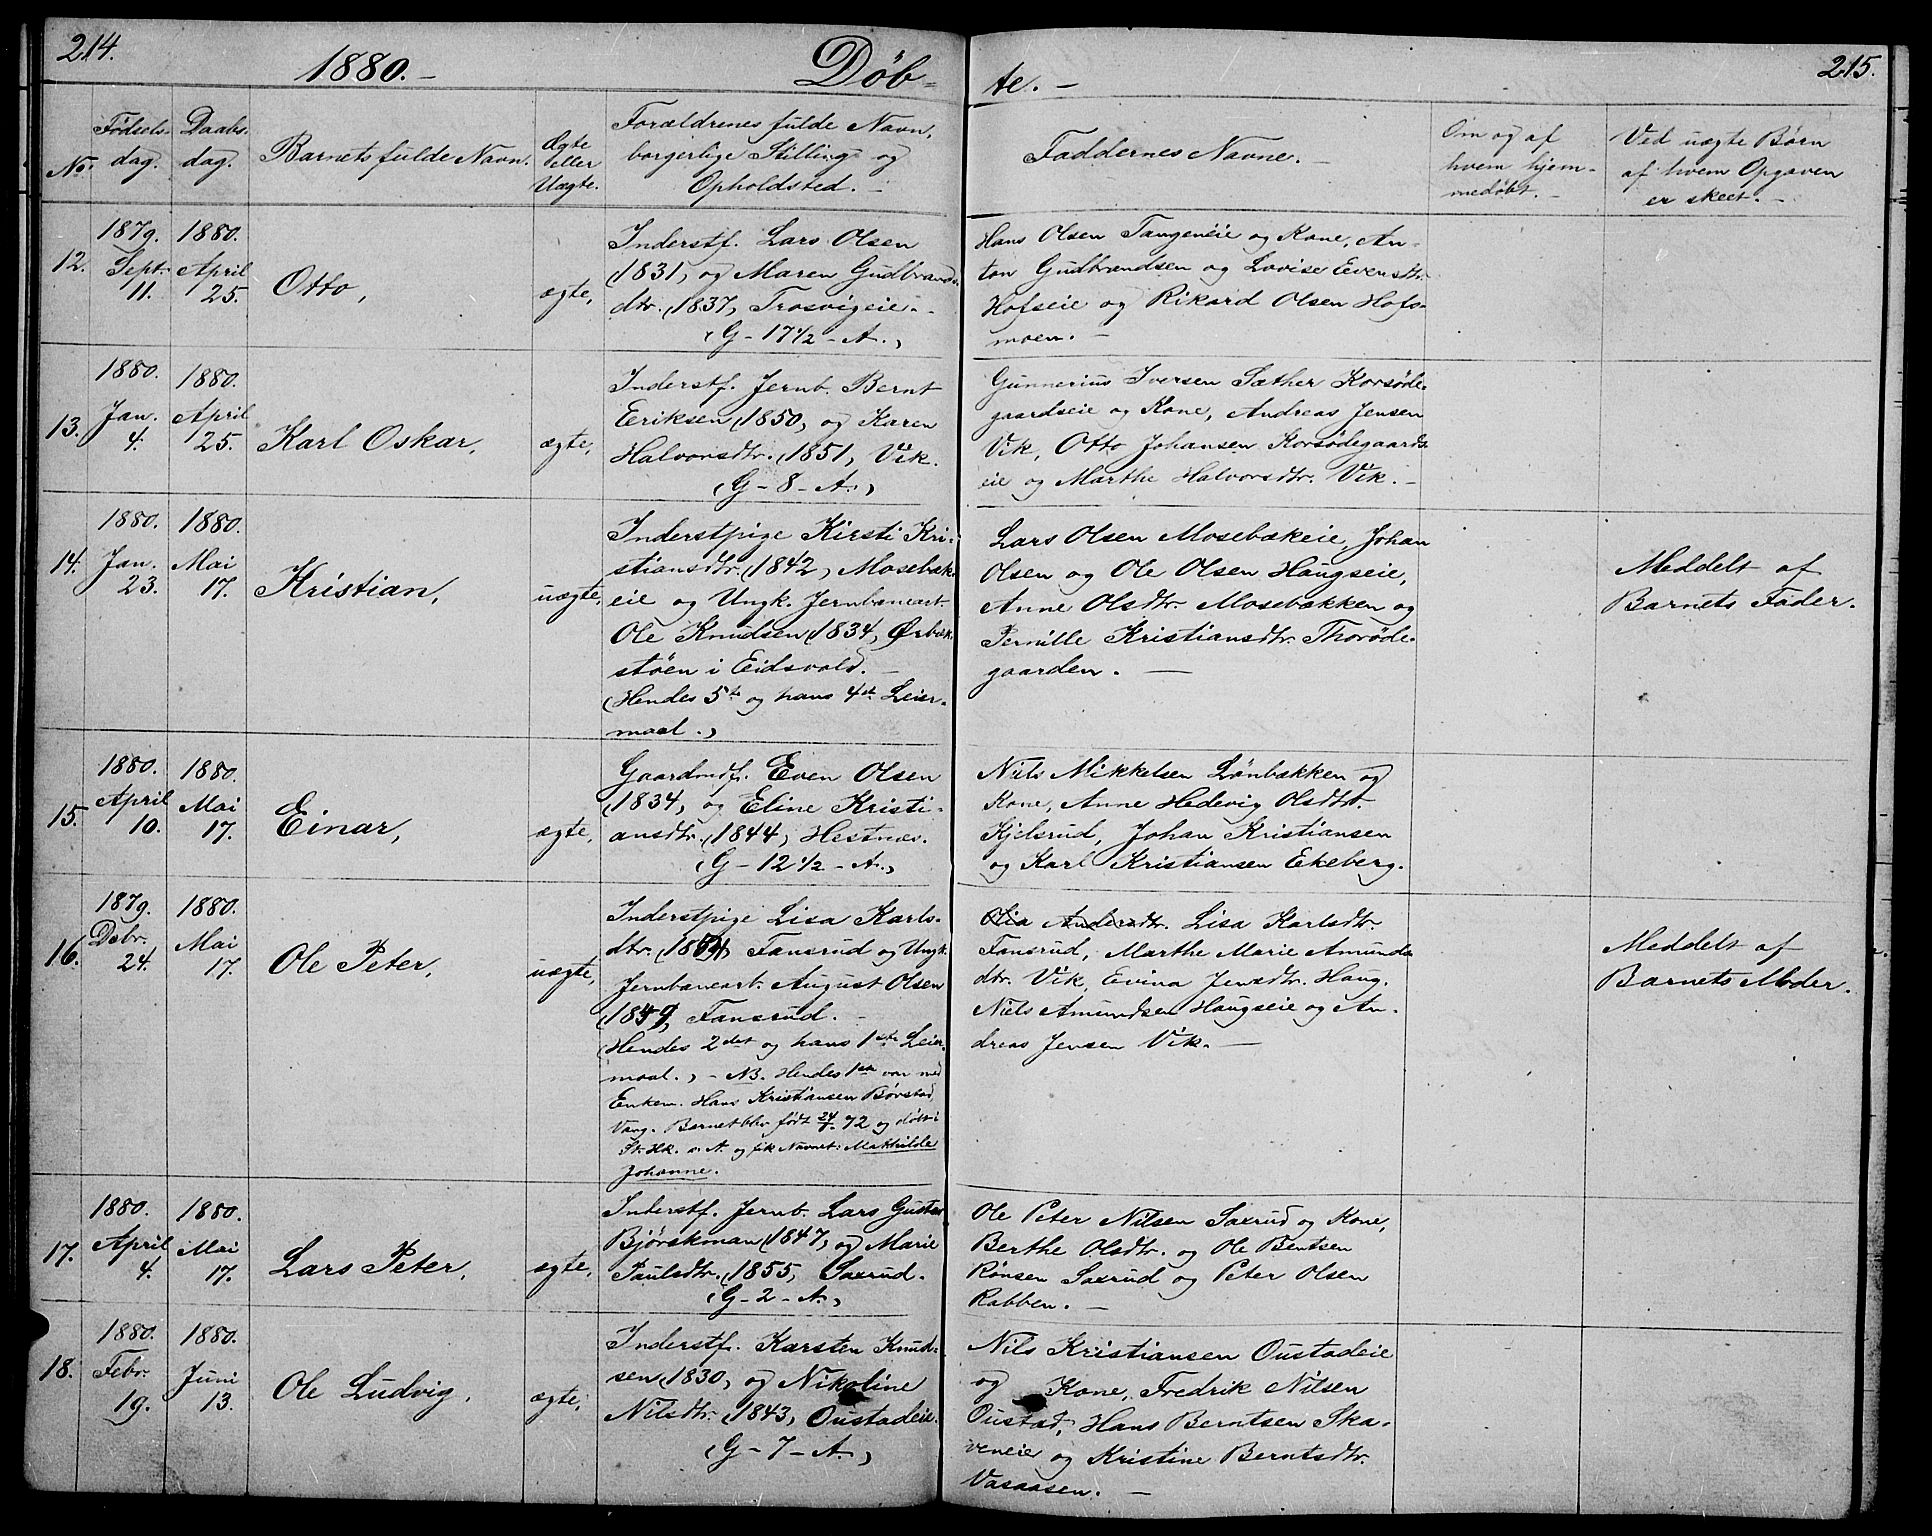 214.
1880.-
Døb-
te.-
215.
No.
Fødsels-
dag.
Daabs-
dag.
Barnets fulde Navn.
Ægte
eller
Uægte.
Forældrenes fulde Navn,
borgerlige Stilling og
Opholdsted.-
Faddernes Navne.-
Om og af
hvem hjem-
medøbt.-
Ved uægte Børn
af hvem Opgaven
er skeet.-
12.
1879.
Sept.
11.
1880.
April
25.
Otto,
ægte,
Inderstf. Lars Olsen
(1831) og Maren Gudbrands-
dtr. (1837) Trosvigeie.-
(G-17½-A.)
Hans Olsen Tangeneie og Kone, An-
ton Gudbrandsen og Lovise Evensdtr.
Hofseie og Rikard Olsen Hofs-
moen.-
13.
1880.
Jan.
4.
1880.
April
25.
Karl Oskar,
ægte,
Inderstf. Jernb. Bernt
Eriksen (1850) og Karen
Halvorsdtr. (1851) Vik.
(G-8-A.)
Gunnerius Iversen Sæther Korsøde-
gaardseie og Kone, Andreas Jensen
Vik, Otto Johansen Korsødegaards-
eie og Marthe Halvorsdtr. Vik.-
14.
1880.
Jan.
23.
1880.
Mai
17.
Kristian,
uægte,
Inderstpige Kirsti Kri-
stiansdtr. (1842) Mosebæk-
eie og Ungk. Jernbanearb.
Ole Knudsen (1834) Ørbæk-
støen i Eidsvold.-
(Hendes 5te og hans 4de Leier-
maal.)
Lars Olsen Mosebækeie, Johan
Olsen og Ole Olsen Haugseie,
Anne Olsdtr. Mosebækken og
Pernille Kristiansdtr. Thorøde-
gaarden.-
Meddelt af
Barnets Fader.
15.
1880.
April
10.
1880.
Mai
17.
Einar,
ægte,
Gaardmdf. Even Olsen
(1834) og Eline Kristi-
ansdtr. (1844) Hestnæs.
(G-12½-A.)
Niels Mikkelsen Lønbækken og
Kone, Anne Hedevig Olsdtr.
Kjelsrud, Johan Kristiansen
og Karl Kristiansen Ekeberg.
16.
1879.
Dcbr.
24.
1880.
Mai
17.
Ole Peter,
uægte,
Inderstpige Lisa Karls-
dtr. (1854) Fansrud og Ungk.
Jernbanearb. August Olsen
(1859) Fansrud.-
(Hendes 2det og hans 1ste Leier-
maal.)- NB. Hendes 1ste var med
Enkem. Hans Kristiansen Børstad,
Vang. Barnet blev født 24/7 72 og døbt i
St. Hk. s. A. og fik Navnet: Mathilde
Johanne.
Olia Andersdtr. Lisa Karlsdtr.
Fansrud, Marthe Marie Amunds-
dtr. Vik, Evina Jensdtr. Haug,
Niels Amundsen Haugseie og An-
dreas Jensen Vik.-
Meddelt af
Barnets Moder.
17.
1880.
April
4.
1880.
Mai
17.
Lars Peter,
ægte,
Inderstf. Jernb. Lars Gustav
Bjørskman (1847) og Marie
Paulsdtr. (1855) Saxrud.
(G-2-A.)
Ole Peter Nilsen Saxrud og Kone,
Berthe Olsdtr. og Ole Bentsen
Rønsen Saxrud og Peter Olsen
Rabben.-
18.
1880.
Febr.
19.
1880.
Juni
13.
Ole Ludvig,
ægte,
Inderstf. Karsten Knud-
sen (1830) og Nikoline
Nilsdtr. (1843) Oustadeie.
(G-7-A.)
Nils Kristiansen Oustadeie
og Kone, Fredrik Nilsen
Oustad, Hans Berntsen Ska-
veneie og Kristine Berntsdtr.
Vasaasen.-